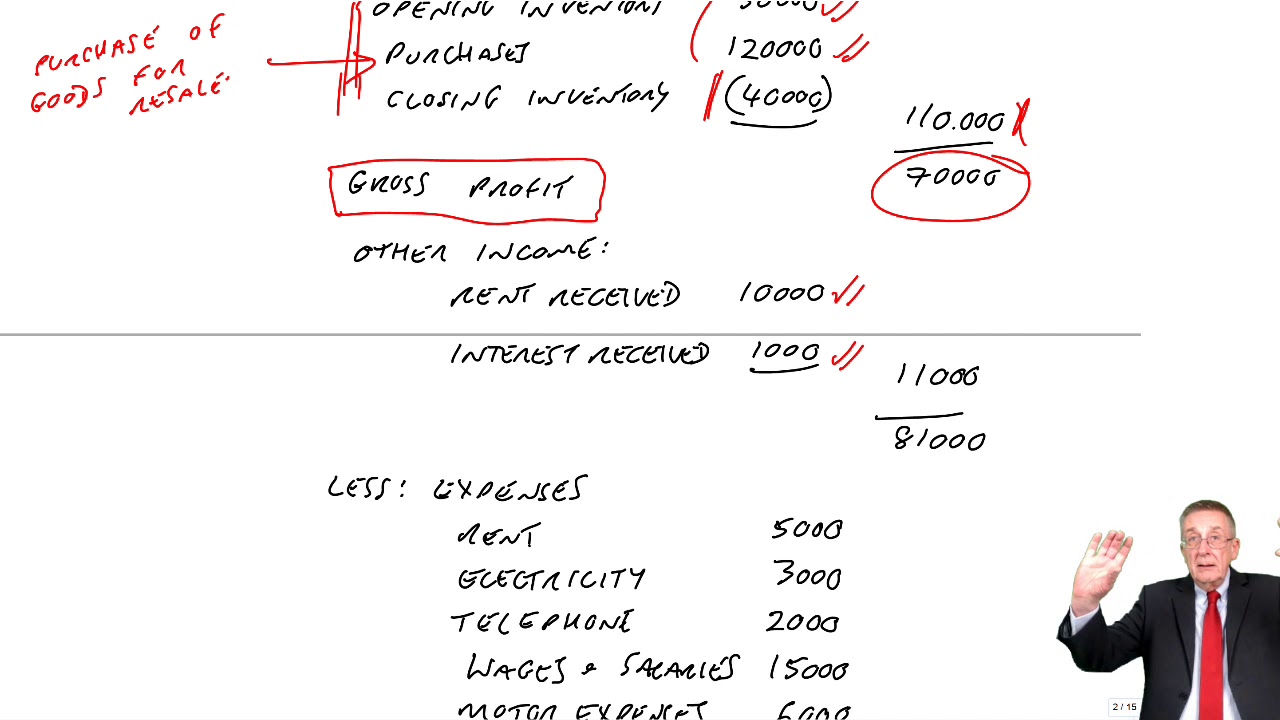 OPENING INVENTORY 30000
PURCHASE OF GOODS FOR RESALE
PURCHASES 120000
CLOSING INVENTORY (40000)
110.000
GROSS PROFIT 70000
OTHER INCOME:
RENT RECEIVED 10000
INTEREST RECEIVED 1000
11000
81000
LESS: EXPENSES
RENT 5000
ELECTRICITY 3000
TELEPHONE 2000
WAGES & SALARIES 15000
MOTOR EXPENSES 6000
2 / 15